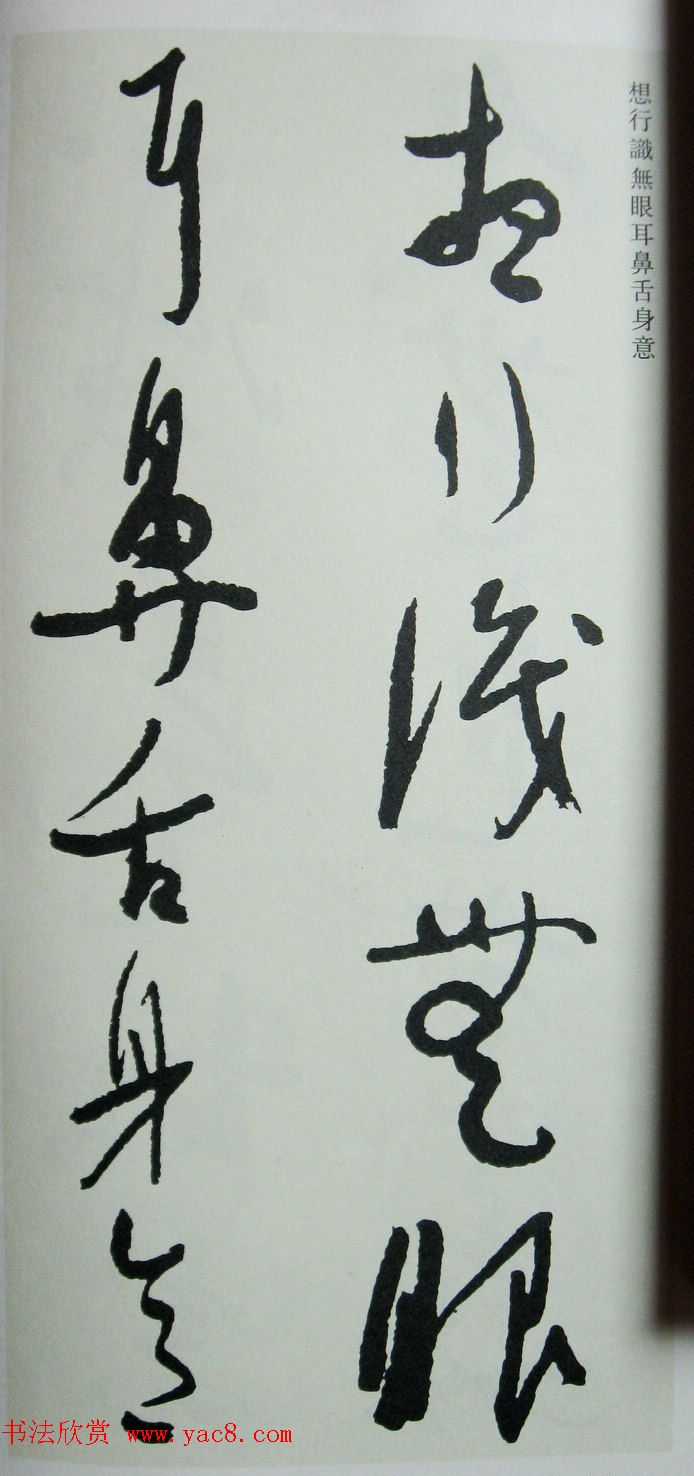 想行識無眼耳鼻舌身意
想行識無眼
耳鼻舌身意
书法欣赏 www.yac8.com